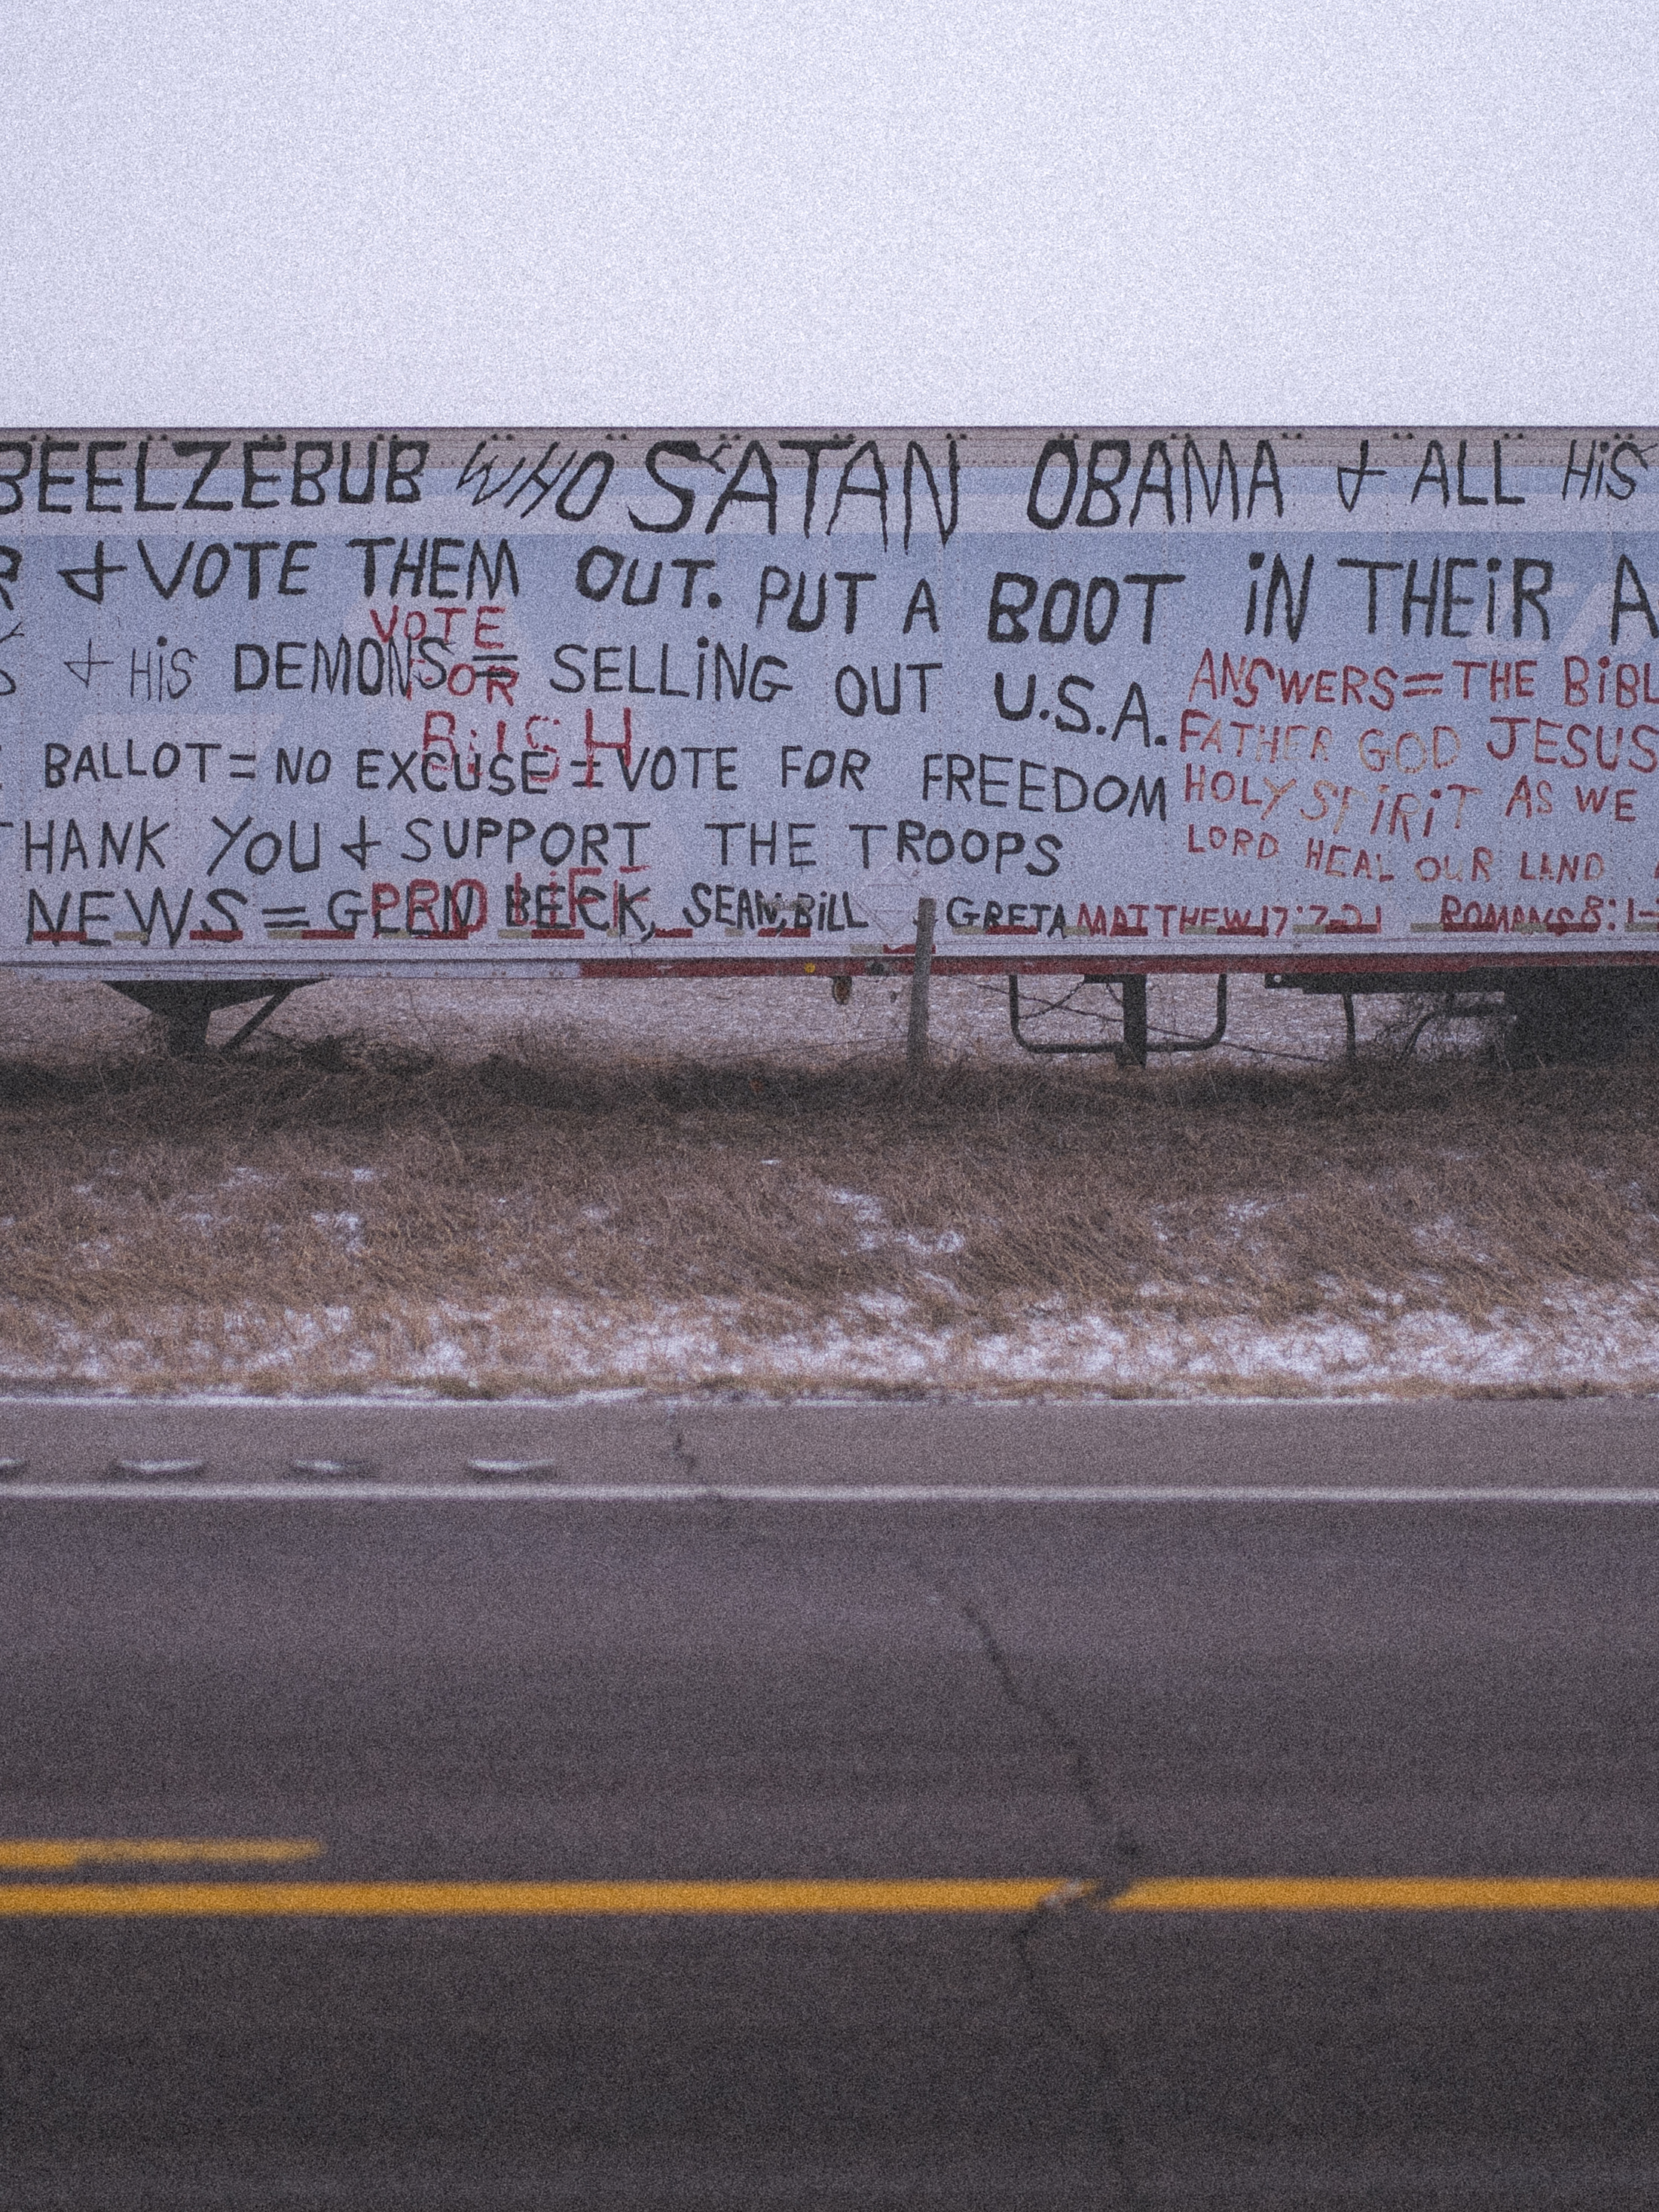 BEELZEBUB WHO SATAN OBAMA & ALL HiS
R & VOTE THEM OUT. PUT A BOOT iN THEiR A
VOTE
& HiS DEMONS = SELLiNG OUT U.S.A.
FOR
BUSH
BALLOT = NO EXCUSE = VOTE FOR FREEDOM
THANK YOU & SUPPORT THE TROOPS
PRO LIFE
NEWS = GLEN BECK, SEAN, BiLL GRETA
ANSWERS = THE BiBL
FATHER GOD JESUS
HOLY SPiRiT AS WE
LORD HEAL OUR LAND
MATTHEW 17:7-21 ROMANS 8:1-